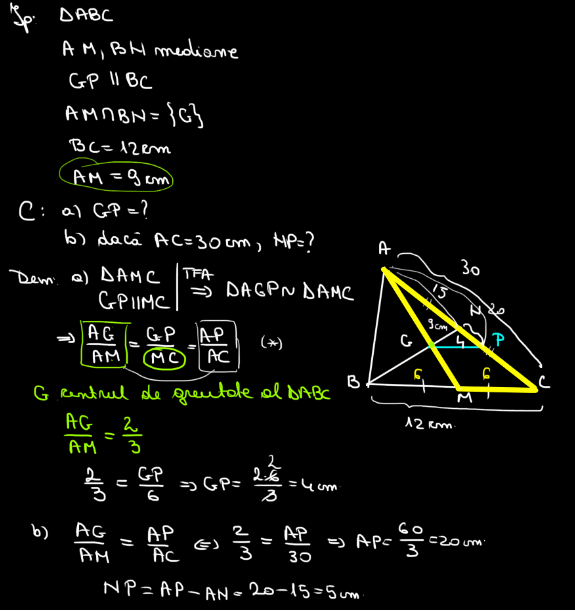 Ip. ΔABC
AM, BN mediane
GP ∥ BC
AM∩BN = {G}
BC = 12cm
AM = 9cm
C: a) GP=?
b) dacă AC=30cm, NP=?
Dem: a) ΔAMC
GP∥MC | TFA ⇒ ΔAGP ~ ΔAMC
⇒ AG/AM = GP/MC = AP/AC (*)
G centrul de greutate al ΔABC
AG/AM = 2/3
2/3 = GP/6 ⇒ GP = 2·6/3 = 4cm
2
b) AG/AM = AP/AC ⇔ 2/3 = AP/30 ⇒ AP = 60/3 = 20cm
NP = AP − AN = 20 − 15 = 5cm
A
30
15
N 20
9cm
G 4 P
B 6 6 C
M
12cm